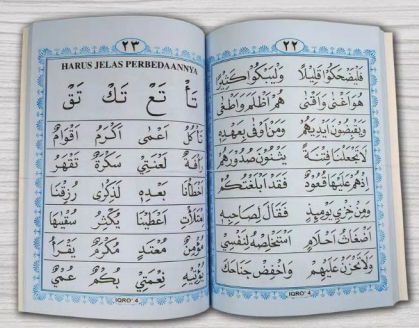 ٢٢
فَلْيَضْحَكُوْا قَلِيْلًا وَلْيَبْكُوْا كَثِيْرًا
هُوَ اَغْنٰى وَاَقْنٰى هُمْ اَظْلَمَ وَاَطْغٰى
وَيَقْبِضُوْنَ اَيْدِيَهُمْ وَمَنْ اَوْفٰى بِعَهْدِهٖ
لَاتَجْعَلْنَا فِتْنَةً يَثْنُوْنَ صُدُوْرَهُمْ
اِذْهُمْ عَلَيْهَا قُعُوْدٌ فَقَدْ اَبْلَغْتُكُمْ
وَمِنْ خِزْيِ يَوْمِئِذٍ فَقَالَ لِصَاحِبِهٖ
اَضْغَاثُ اَحْلَامٍ اَسْتَخْلِصْهُ لِنَفْسِيْ
وَلَاتَحْزَنْ عَلَيْهِمْ وَاخْفِضْ جَنَاحَكَ
IQRO' 4
٢٣
HARUS JELAS PERBEDAANNYA
تَأْ تَعْ تَكْ تَقْ
تَأْكُلُ اَعْمٰى اَكْرَمُ اَقْوَامٌ
رَأْفَةٌ لَعْنَتِيْ سَكْرَةُ تَقْهَرْ
اَخْطَأْنَا بَعْدِهٖ لَذِكْرٰى رُزِقْنَا
اَعْطَيْنَا يُكْفَرُ سُقْيٰهَا
مُؤْمِنٌ مُعْتَدٍ مُكْرَمٌ يَقْرَأُ
نُؤْتِيْهِ نِعْمَتِيْ بُكْمٌ عُمْيٌ
IQRO' 4